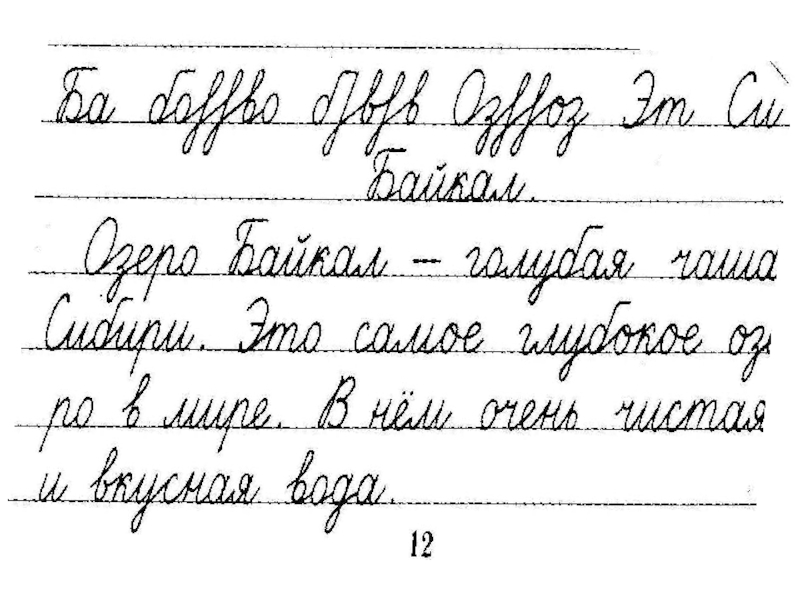 Ба Оз Эт Си
Байкал.
Озеро Байкал – голубая чаша
Сибири. Это самое глубокое оз
ро в мире. В нём очень чистая
и вкусная вода.
12